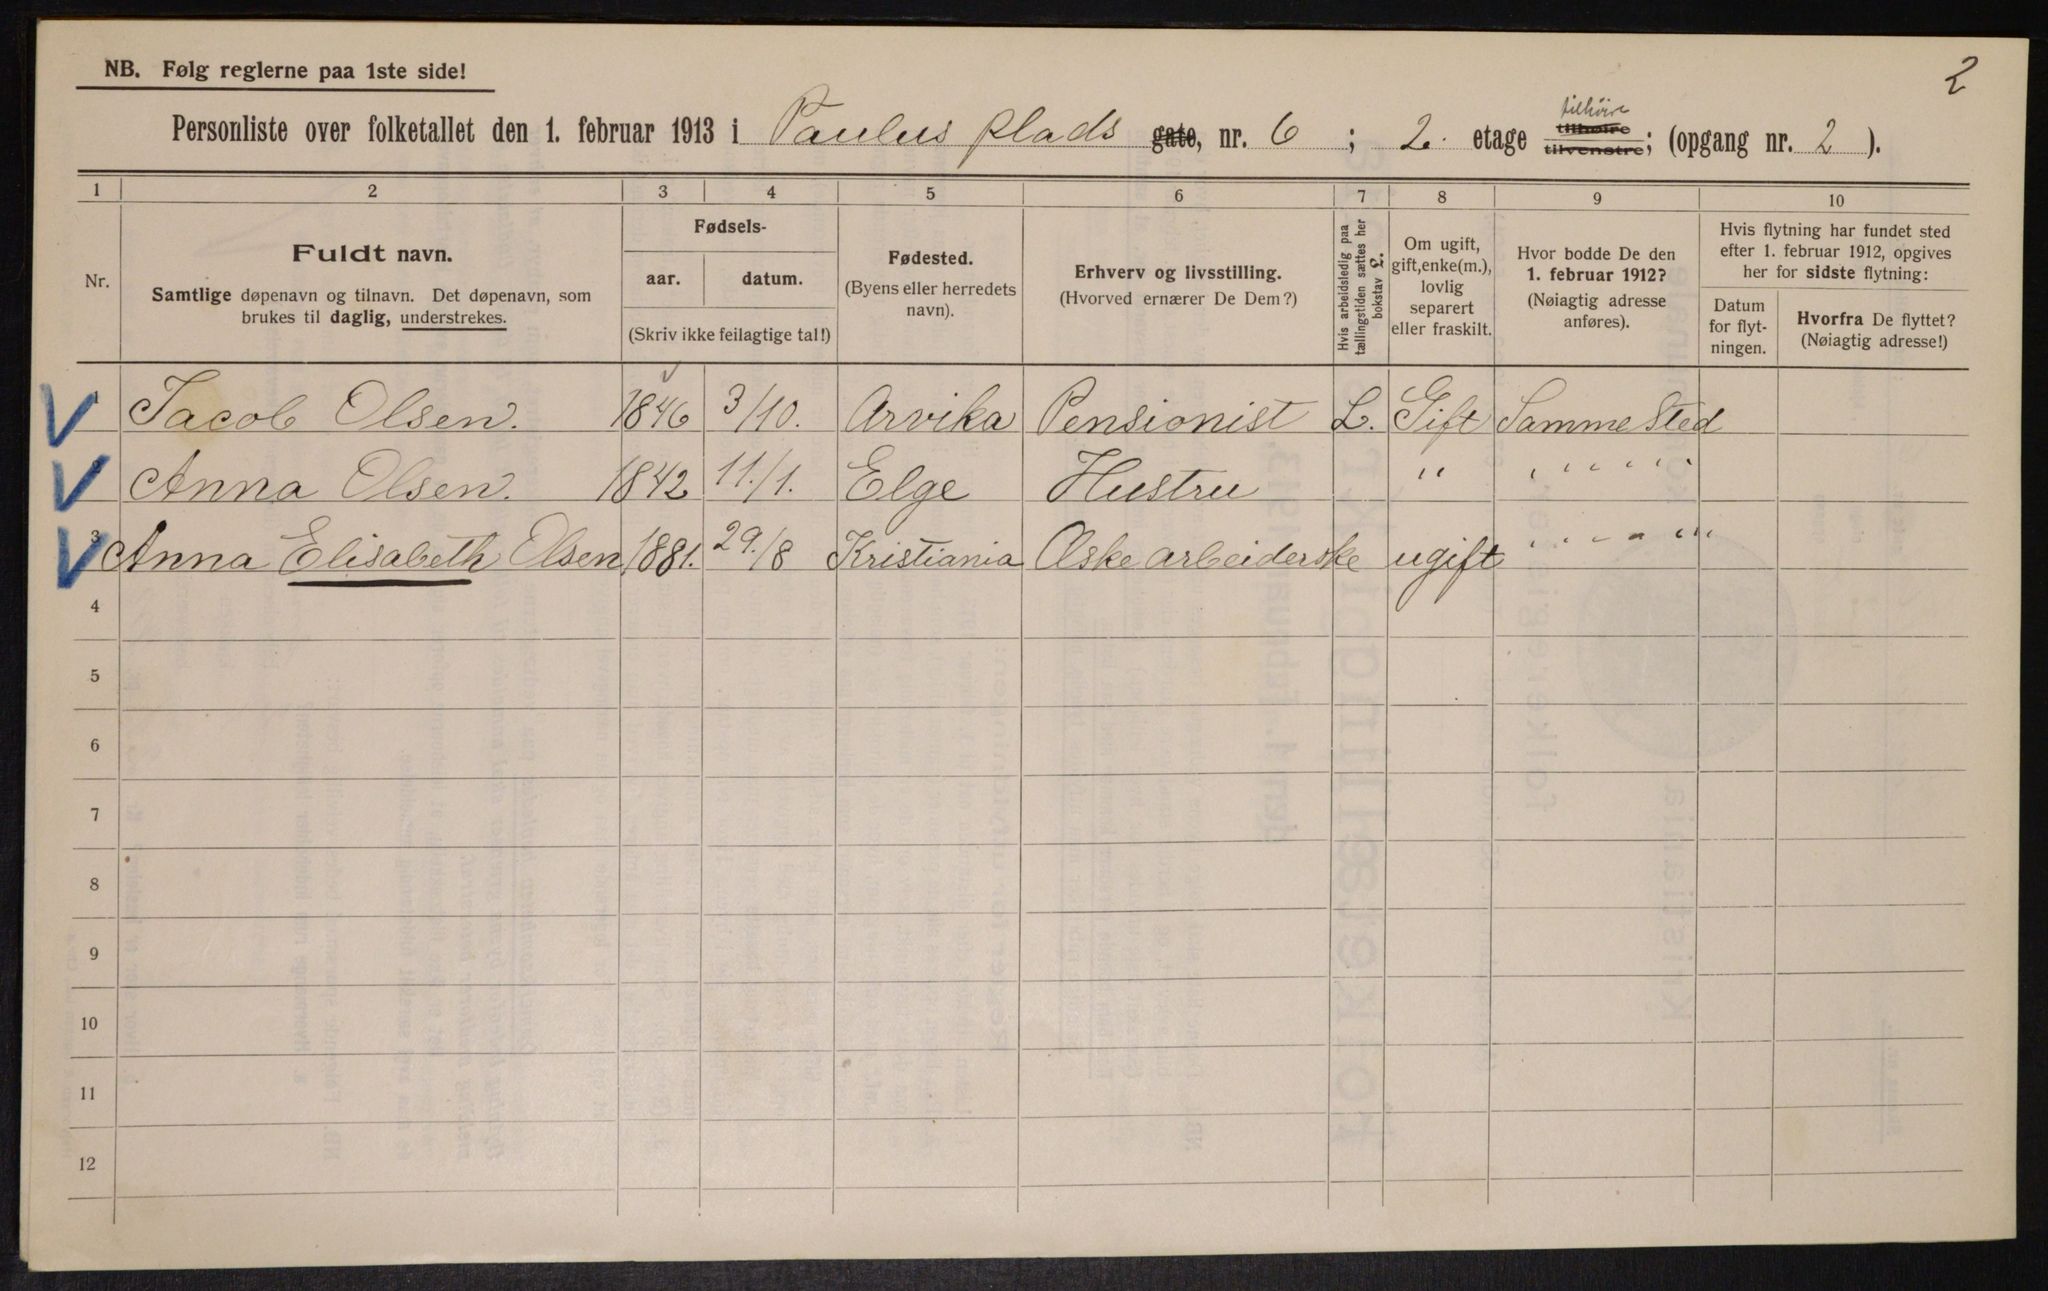 2
NB. Følg reglerne paa 1ste side!
tilhöire
Personliste over folketallet den 1. februar 1913 i Paulus plads gate, nr. 6 ; 2. etage tilhøire tilvenstre; (opgang nr. 2 ).
1 2 3 4 5 6 7 8 9 10
Nr.
Fuldt navn.
Samtlige døpenavn og tilnavn. Det døpenavn, som
brukes til daglig, understrekes.
Fødsels-
aar. datum.
(Skriv ikke feilagtige tal!)
Fødested.
(Byens eller herredets
navn).
Erhverv og livsstilling.
(Hvorved ernærer De Dem?)
Hvis arbeidsledig paa
tællingstiden sættes her
bokstav L.
Om ugift,
gift, enke(m.),
lovlig
separert
eller fraskilt.
Hvor bodde De den
1. februar 1912?
(Nøiagtig adresse
anføres).
Hvis flytning har fundet sted
efter 1. februar 1912, opgives
her for sidste flytning:
Datum
for flyt-
ningen.
Hvorfra De flyttet?
(Nøiagtig adresse!)
1 Jacob Olsen. 1846 3/10. Arvika Pensionist L. Gift Samme Sted
2 Anna Olsen. 1842 11./1. Elge Hustru " " " " " "
3 Anna Elisabeth Olsen 1881. 29./8 Kristiania Æske arbeiderske ugift " " " " " "
4
5
6
7
8
9
10
11
12